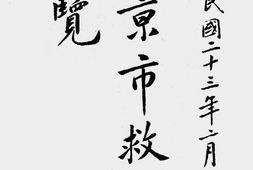 民國二十三年二月
京市救
覽